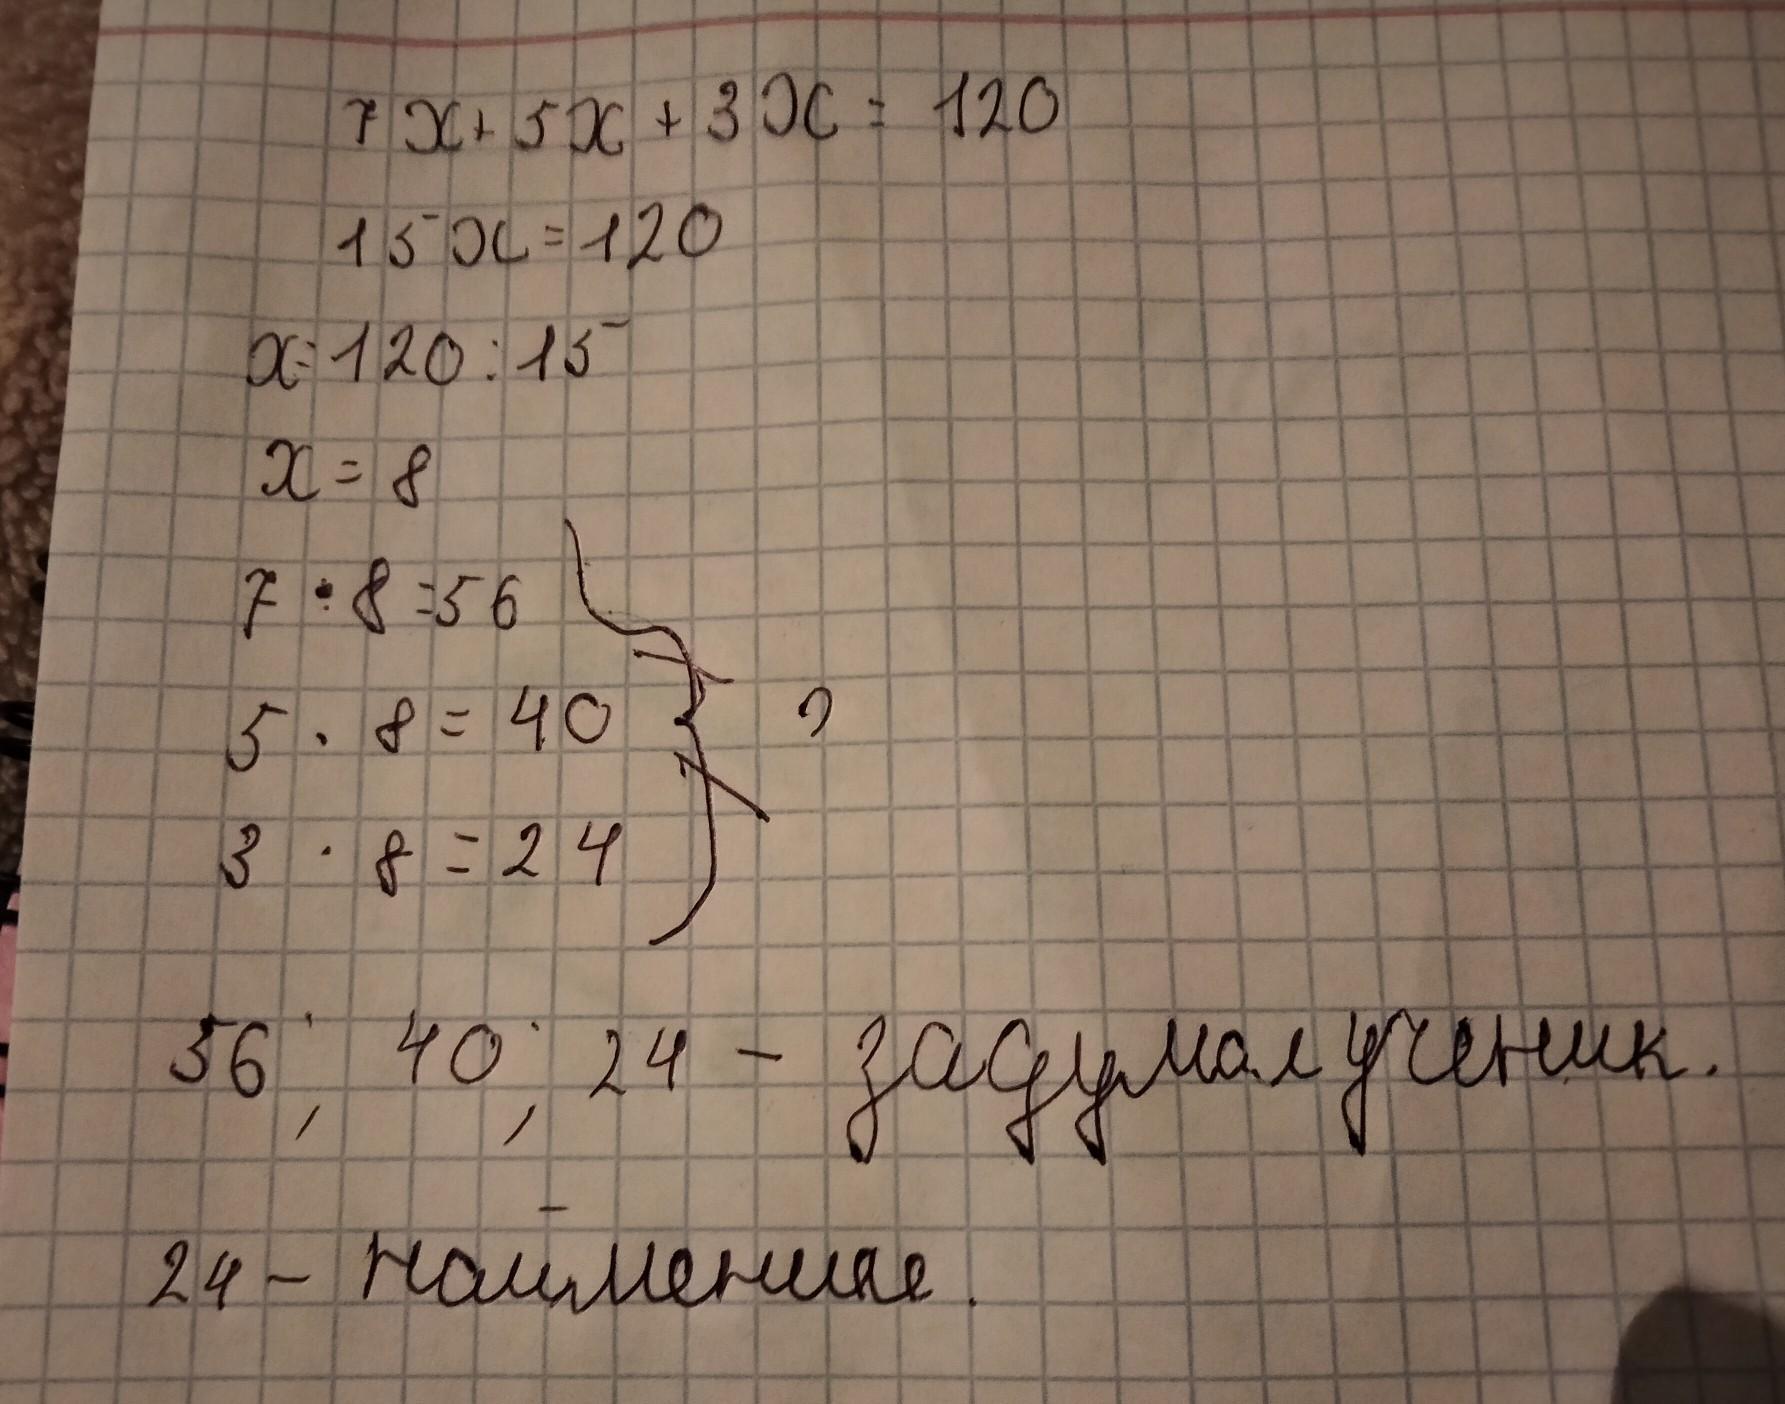 7x + 5x + 3x = 120
15x = 120
x = 120 : 15
x = 8
7 · 8 = 56
5 · 8 = 40
?
3 · 8 = 24
56; 40; 24 - задумал ученик.
24 - наименшее.